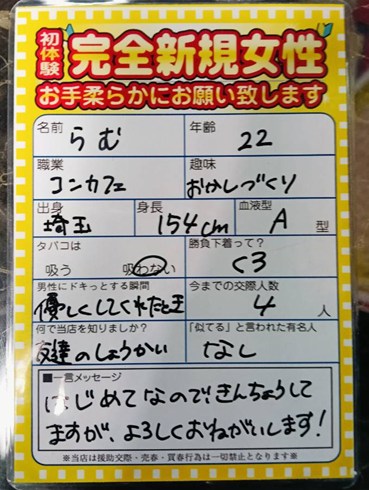 初体験
完全新規女性
お手柔らかにお願い致します
名前 らむ 年齢 22
職業 コンカフェ 趣味 おかしづくり
出身 埼玉 身長 154cm 血液型 A 型
タバコは 吸う 吸わない 勝負下着って? くろ
男性にドキっとする瞬間 優しくしてくれたとき 今までの交際人数 4 人
何で当店を知りましたか? 友達のしょうかい 「似てる」と言われた有名人 なし
■一言メッセージ
はじめてなので、きんちょうして
ますが、よろしくおねがいします!
※当店は援助交際・売春・買春行為は一切禁止となります※